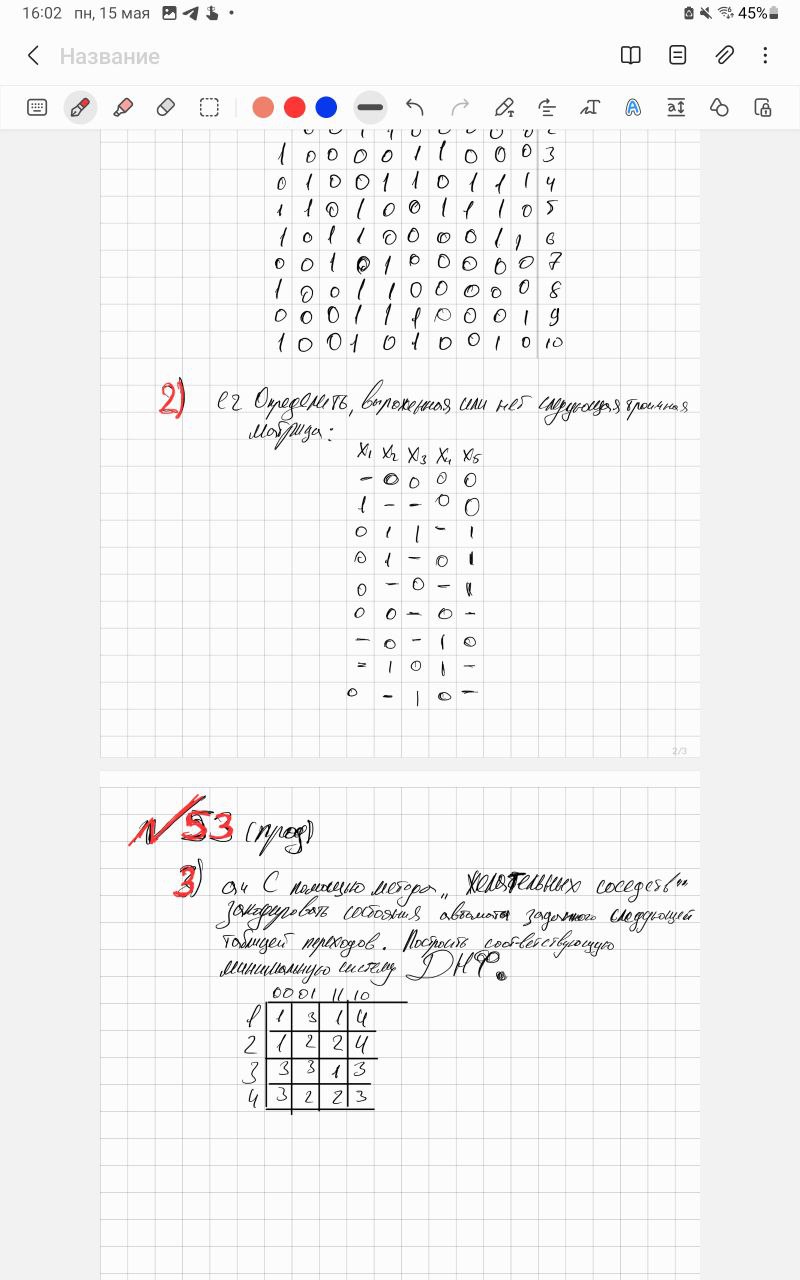 16:02 пн, 15 мая 45%
Название
1 0 0 0 0 1 1 0 0 0 3
0 1 0 0 1 1 0 1 1 1 4
1 1 0 1 0 0 1 1 1 0 5
1 0 1 1 0 0 0 0 1 1 6
0 0 1 0 1 0 0 0 0 0 7
1 0 0 1 1 0 0 0 0 0 8
0 0 0 1 1 1 0 0 0 1 9
1 0 0 1 0 1 0 0 1 0 10
2) Определить, вырожденная или нет следующая троичная
матрица:
x1 x2 x3 x4 x5
- 0 0 0 0
1 - - 0 0
0 1 1 - 1
0 1 - 0 1
0 - 0 - 1
0 0 - 0 -
- 0 - 1 0
- 1 0 1 -
0 - 1 0 -
2/3
№53 (прод)
3) С помощью метода „желательных соседств"
закодировать состояния автомата заданного следующей
таблицей переходов. Построить соответствующую
минимальную систему ДНФ.
00 01 11 10
1 1 3 1 4
2 1 2 2 4
3 3 3 1 3
4 3 2 2 3